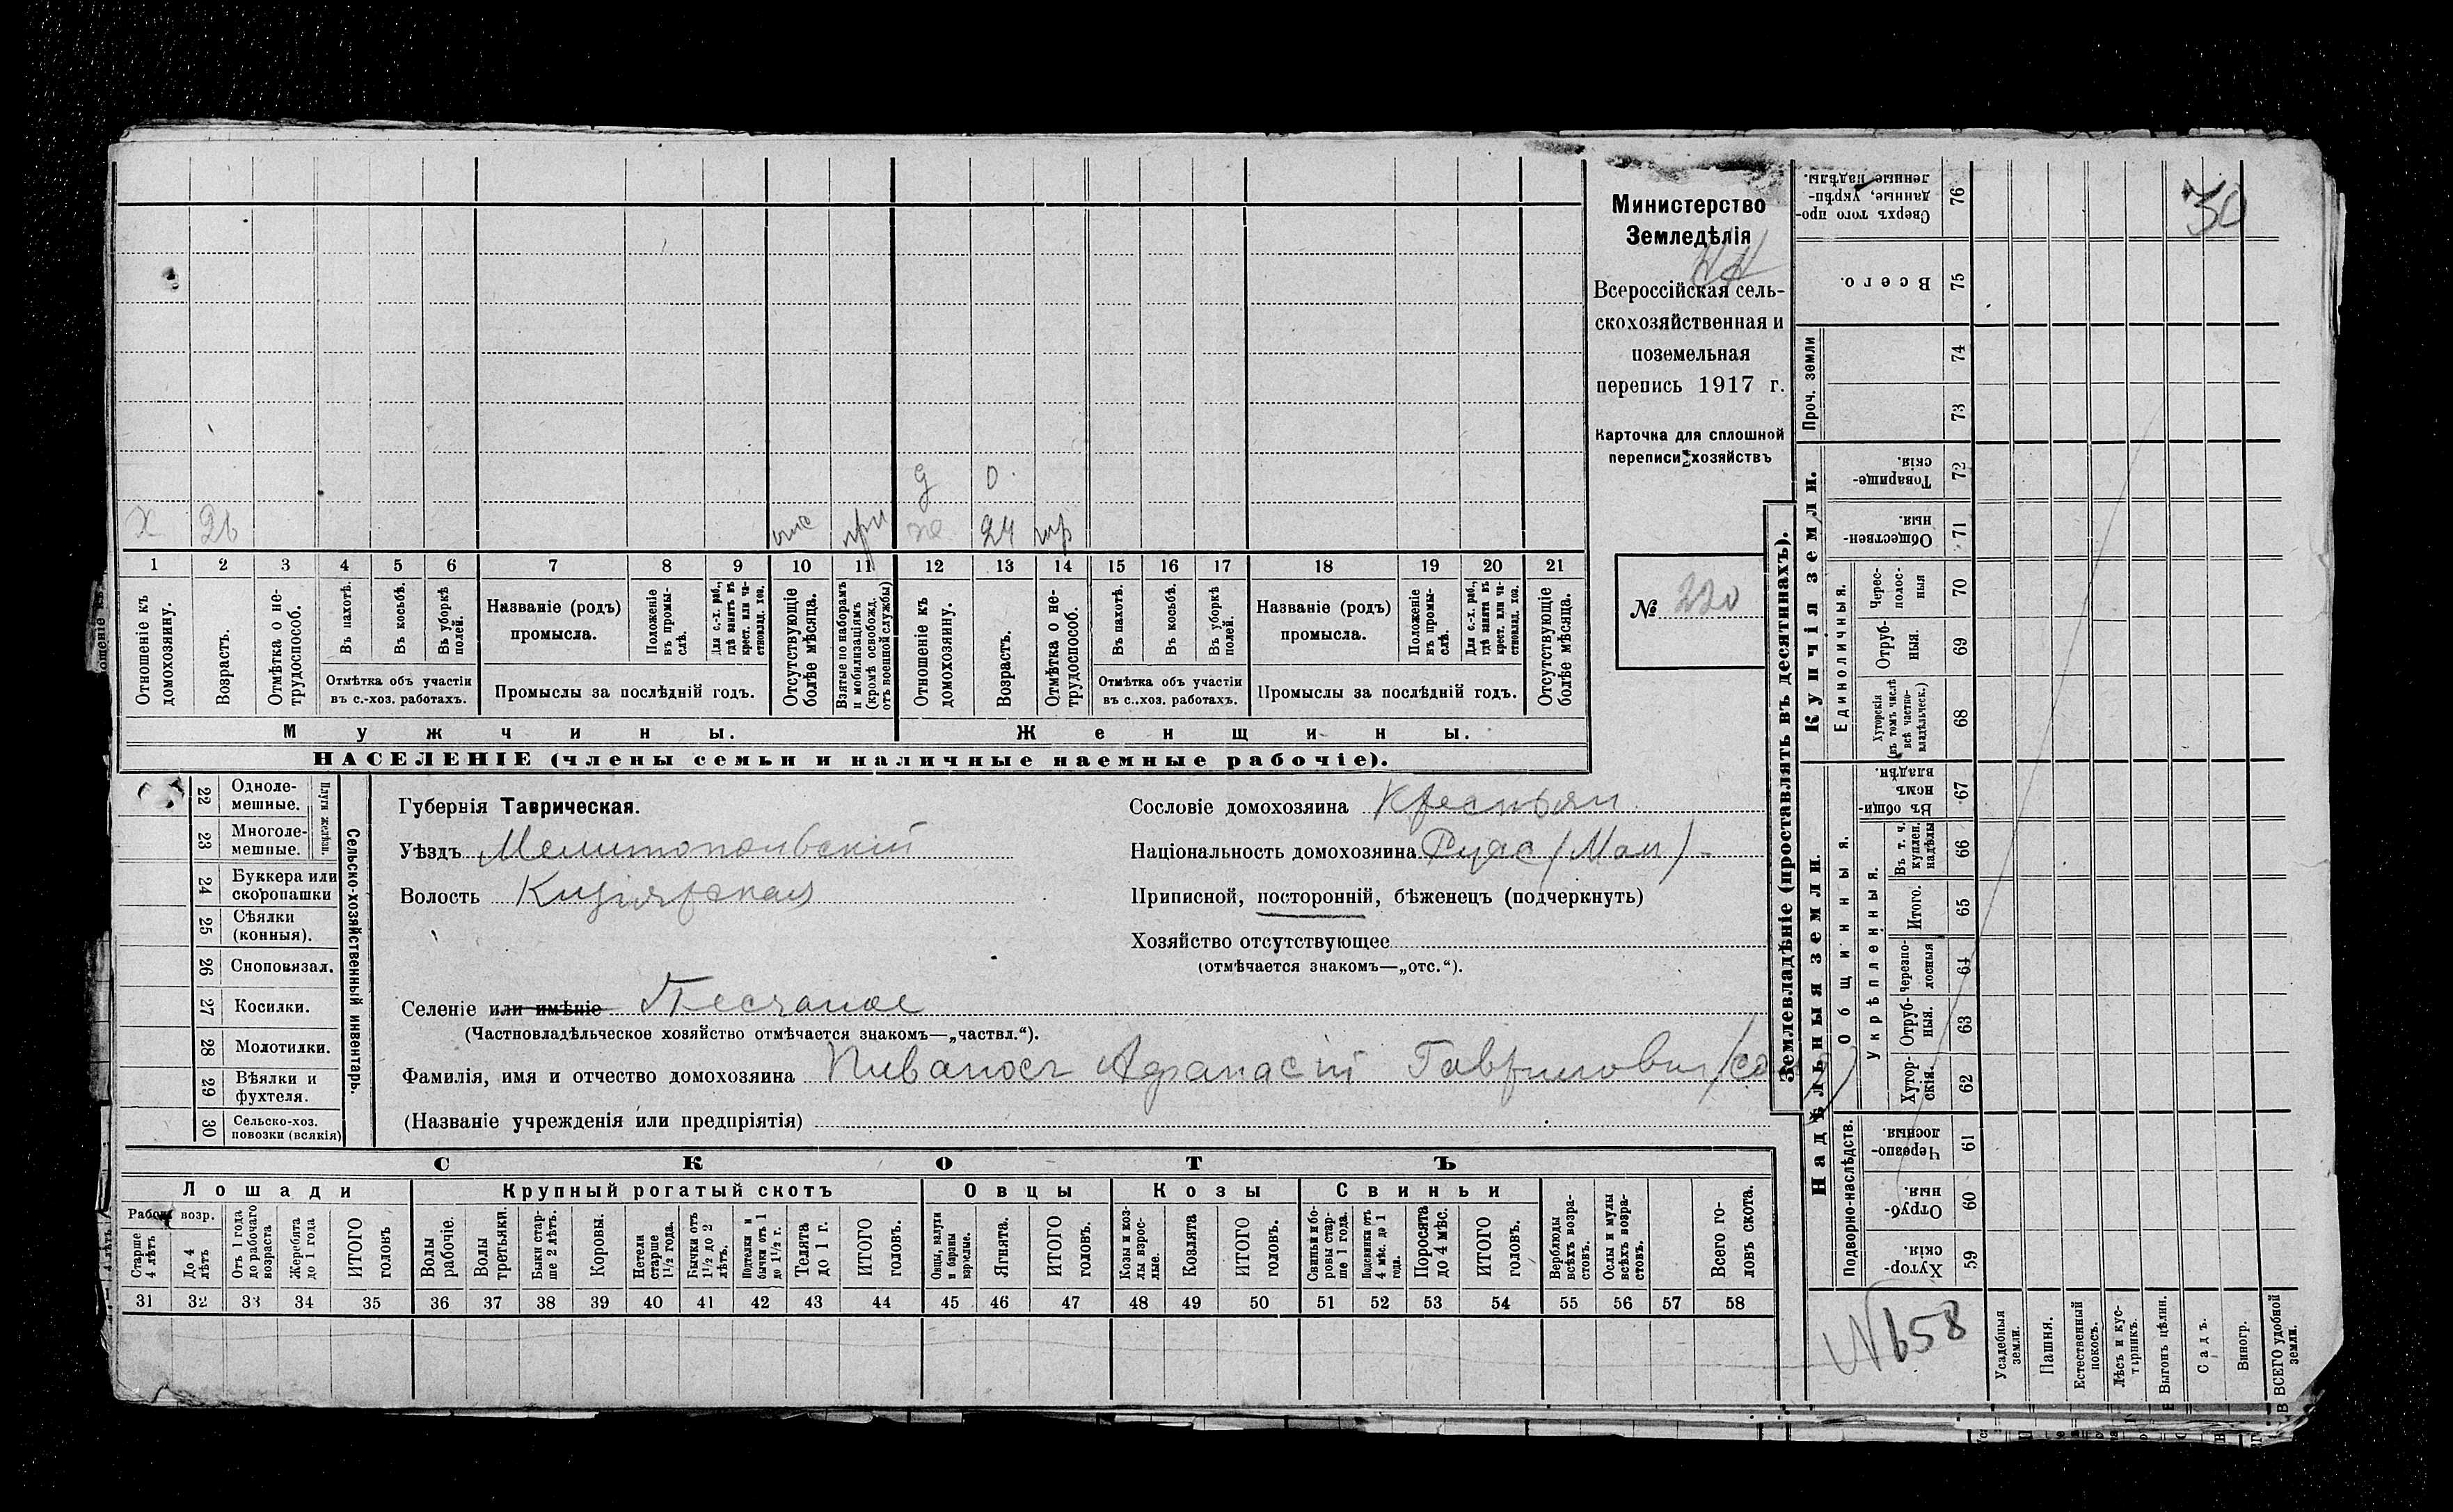 30
Министерство
Земледѣлія
Всероссійская сель-
скохозяйственная и
поземельная
перепись 1917 г.
Карточка для сплошной
переписи хозяйствъ
№ 220
д 0
х 26 отс при ж 24 тр
1 2 3 4 5 6 7 8 9 10 11 12 13 14 15 16 17 18 19 20 21
Отношеніе къ домохозяину.
Возрастъ.
Отмѣтка о не-трудоспособ.
Въ пахотѣ.
Въ косьбѣ.
Въ уборкѣ полей.
Отмѣтка объ участіи
въ с.-хоз. работахъ.
Названіе (родъ)
промысла.
Положеніе въ промы-слѣ.
Для с.-х. раб., гдѣ занятъ въ крест. или ча-стновлад. хоз.
Промыслы за послѣдній годъ.
Отсутствующіе болѣе мѣсяца.
Взятые по наборамъ и мобилизаціямъ (кромѣ освобожд. отъ военной службы)
Отношеніе къ домохозяину.
Возрастъ.
Отмѣтка о не-трудоспособ.
Въ пахотѣ.
Въ косьбѣ.
Въ уборкѣ полей.
Отмѣтка объ участіи
въ с..хоз. работахъ.
Названіе (родъ)
промысла.
Положеніе въ промы-слѣ.
Для с.-х. раб., гдѣ занята въ крест. или ча-стновлад. хоз.
Промыслы за послѣдній годъ.
Отсутствующіе болѣе мѣсяца.
Мужчины.
Женщины.
НАСЕЛЕНІЕ (члены семьи и наличные наемные рабочіе).
22 Одноле-мешные.
23 Многоле-мешные.
Плуги желѣзн.
24 Буккера или скоропашки
25 Сѣялки (конныя).
26 Сноповязал.
27 Косилки.
28 Молотилки.
29 Вѣялки и фухтеля.
30 Сельско-хоз. повозки (всякія)
Сельско-хозяйственный инвентарь.
Губернія Таврическая.
Уѣздъ Мелитопольскій
Волость Кизіярская
Селеніе или имѣніе Песчаное
(Частновладѣльческое хозяйство отмѣчается знакомъ—„частвл.“).
Фамилія, имя и отчество домохозяина Пивапосъ Афанасій Гаврилович
(Названіе учрежденія или предпріятія)
Сословіе домохозяина Крестьян
Національность домохозяина Русс (Мал)
Приписной, посторонній, бѣженецъ (подчеркнуть)
Хозяйство отсутствующее
(отмѣчается знакомъ—„отс.“).
СКОТЪ
Лошади
Крупный рогатый скотъ
Овцы
Козы
Свиньи
Рабоч. возр.
Старше 4 лѣтъ
До 4 лѣтъ
Отъ 1 года до рабочаго возраста
Жеребята до 1 года
ИТОГО головъ
Волы рабочіе.
Волы третьяки.
Быки стар-ше 2 лѣтъ.
Коровы.
Нетели старше 1½ года.
Бычки отъ 1½ до 2 лѣтъ.
Подтелки и бычки отъ 1 до 1½ г.
Телята до 1 г.
ИТОГО головъ.
Овцы, валухи и бараны взрослые.
Ягнята.
ИТОГО головъ.
Козы и коз-лы взрос-лые.
Козлята
ИТОГО головъ.
Свиньи и бо-ровы стар-ше 1 года.
Подсвинки отъ 4 мѣс. до 1 года.
Поросята до 4 мѣс.
ИТОГО головъ.
Верблюды всѣхъ возра-стовъ.
Ослы и мулы всѣхъ возра-стовъ.
Всего го-ловъ скота.
31 32 33 34 35 36 37 38 39 40 41 42 43 44 45 46 47 48 49 50 51 52 53 54 55 56 57 58
Землевладѣніе (проставлять въ десятинахъ).
Купчія земли.
Надѣльныя земли.
Сверхъ того про-данные, укрѣп-ленные надѣлы. 76
Всего. 75
Проч. земли
74
73
Товарище-скія. 72
Обществен-ныя. 71
Единоличныя.
Черес-полос-ныя 70
Отруб-ныя. 69
Хуторскія (въ томъ числѣ всѣ частно-владѣльческ.) 68
Общинныя.
Въ общи-номъ владѣн. 67
Укрѣпленныя.
Въ т. ч. куплен. надѣлы 66
Итого. 65
Черезпо-лосныя 64
Отруб-ныя. 63
Хутор-скія. 62
Подворно-наслѣдств.
Черезпо-лосныя. 61
Отруб-ныя. 60
Хутор-скія. 59
N658
Усадебныя земли.
Пашня.
Естественный покосъ.
Лѣсъ и кус-тарникъ.
Выгонъ цѣлин.
Садъ.
Виногр.
ВСЕГО удобной земли.